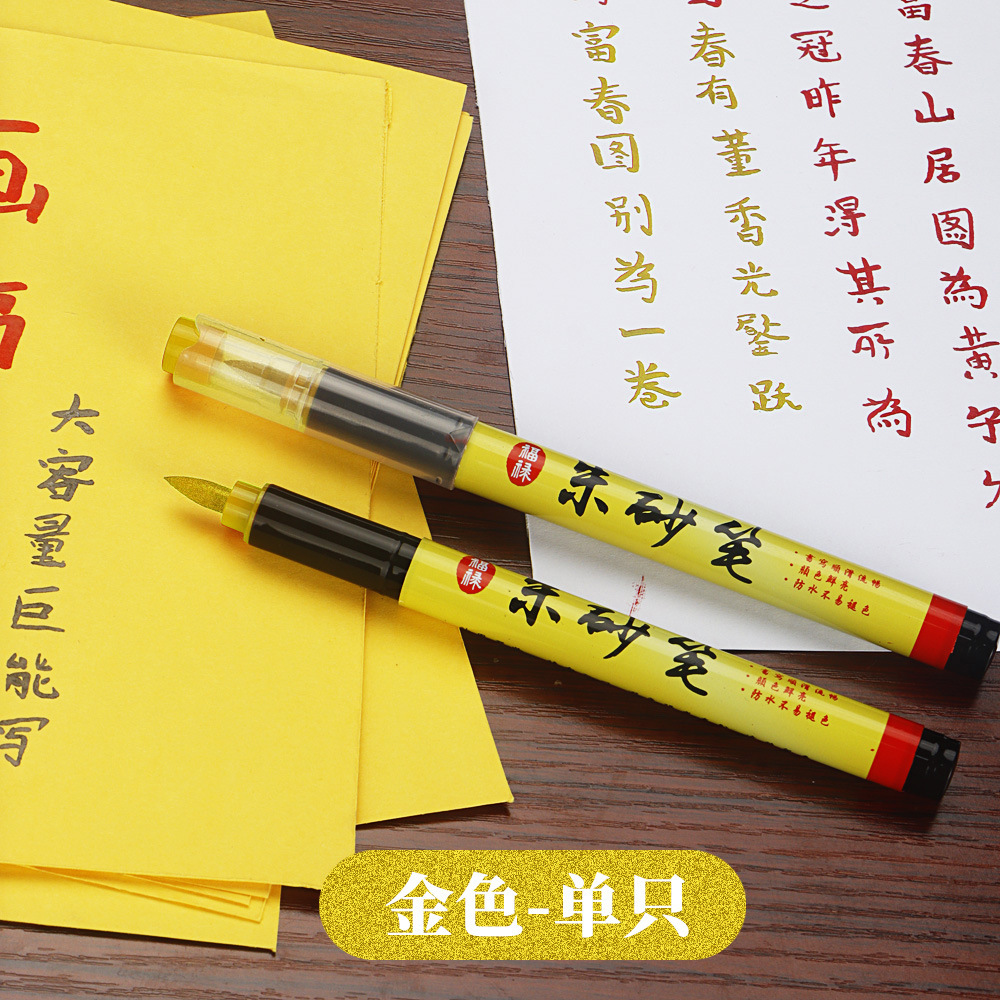 画
大客量巨能写
富春山居图為黄子久
之冠昨年得其所為
春有董香光鑒跋
富春图别为一卷
福禄
朱砂笔
·書写順滑流暢
·顏色鮮亮
·防水不易褪色
福禄
朱砂笔
·書写順滑流暢
·顏色鮮亮
·防水不易褪色
金色-单只